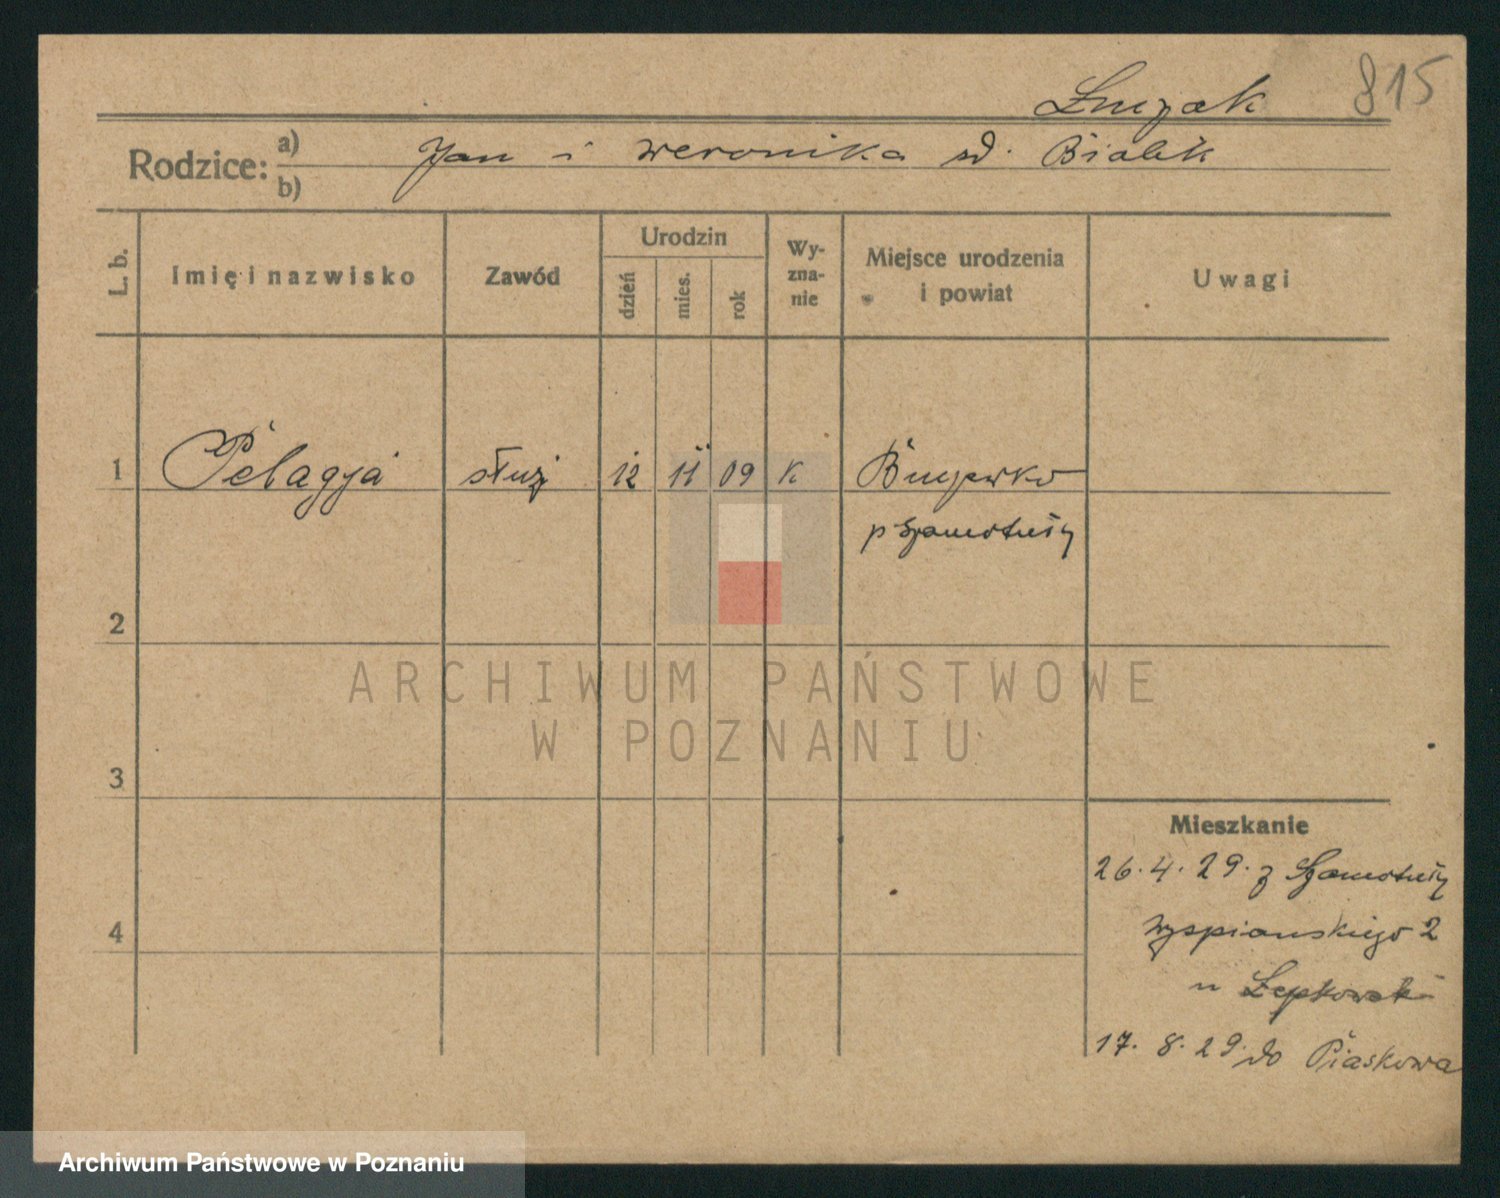 815
Rodzice: a) Jan i Weronika sd. Bialik
b)
L. b.
Imię i nazwisko
Zawód
Urodzin
dzień
mies.
rok
Wy-
zna-
nie
Miejsce urodzenia
i powiat
Uwagi
1 Pelagja służ 12 11 09 K
p Szamotuły
2
3
4
Mieszkanie
26.4.29. z Szamotuły
Wyspianskiego 2
u
17. 8. 29. do Piaskowa
ARCHIWUM PAŃSTWOWE
W POZNANIU
Archiwum Państwowe w Poznaniu